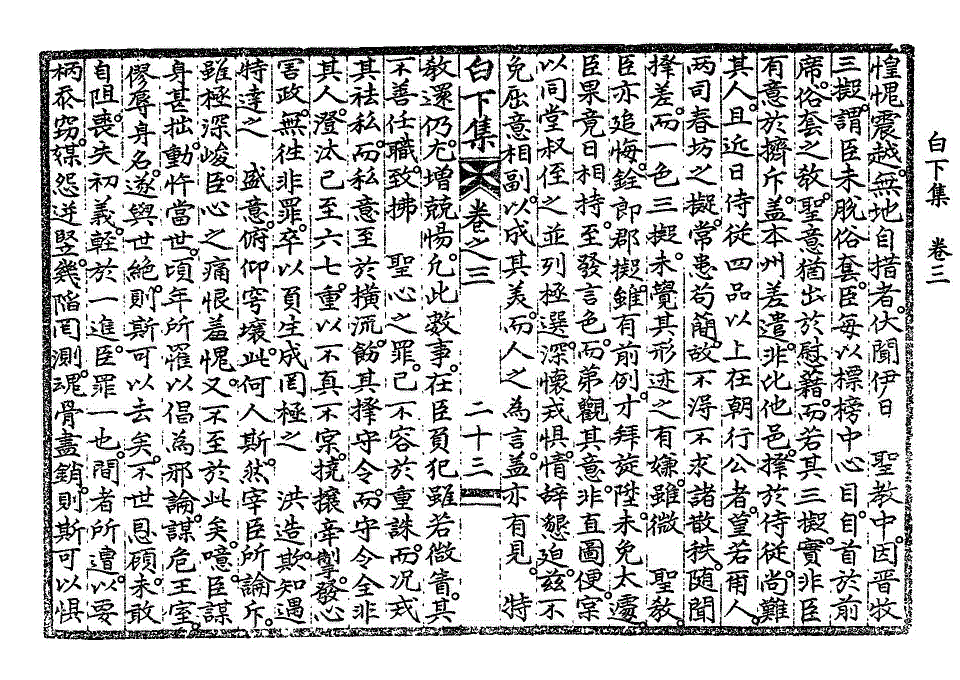 惶愧震越。無地自措者。伏聞伊日　聖教中。因晋牧
三擬。謂臣未脫俗套。臣每以標榜中心。目自首於前
席。俗套之教。聖意猶出於慰藉。而若其三擬。實非臣
有意於擠斥。盖本州差遣。非比他邑。擇於侍從。尚難
其人。且近日侍從四品以上在朝行公者。堇若爾人。
两司春坊之擬。常患苟簡。故不得不求諸散秩。随聞
擇差。而一色三擬。未覺其形迹之有嫌。雖微　聖教。
臣亦追悔。銓郎郡擬。雖有前例。才拜旋陞。未免太遽
臣果竟日相持。至發言色。而弟觀其意。非直圖便。寀
以同堂叔侄之並列極選。深懷戒惧。情辞懇迫。玆不
免屈意相副。以成其美。而人之為言。盖亦有見。　特
白下集　卷之三　二十三
教還仍。尤增兢惕。凢此數事。在臣負犯。雖若微眚。其
不善任職。致拂　聖心之罪。已不容於重誅。而况戎
其祛私。而私意至於橫流。飭其擇守令。而守令全非
其人。澄汰已至六七。重以不真不寀。撓攘牽掣。發心
害政。無往非罪。卒以負生成罔極之　洪造。欺知遇
特達之　盛意。俯仰穹壤。此何人斯。然宰臣所論斥。
雖極深峻。臣心之痛恨羞愧。又不至於此矣。噫。臣謀
身甚拙。動忤當世。頃年所罹以倡為邪論。謀危王室。
僇辱身名。遂與世絶。則斯可以去矣。不世恩顧。未敢
自阻。喪夫初義。輕於一進。臣罪一也。間者所遭。以要
柄忝竊。媒怨逆竪。幾陷罔測。魂骨盡銷。則斯可以惧
白下集　卷三